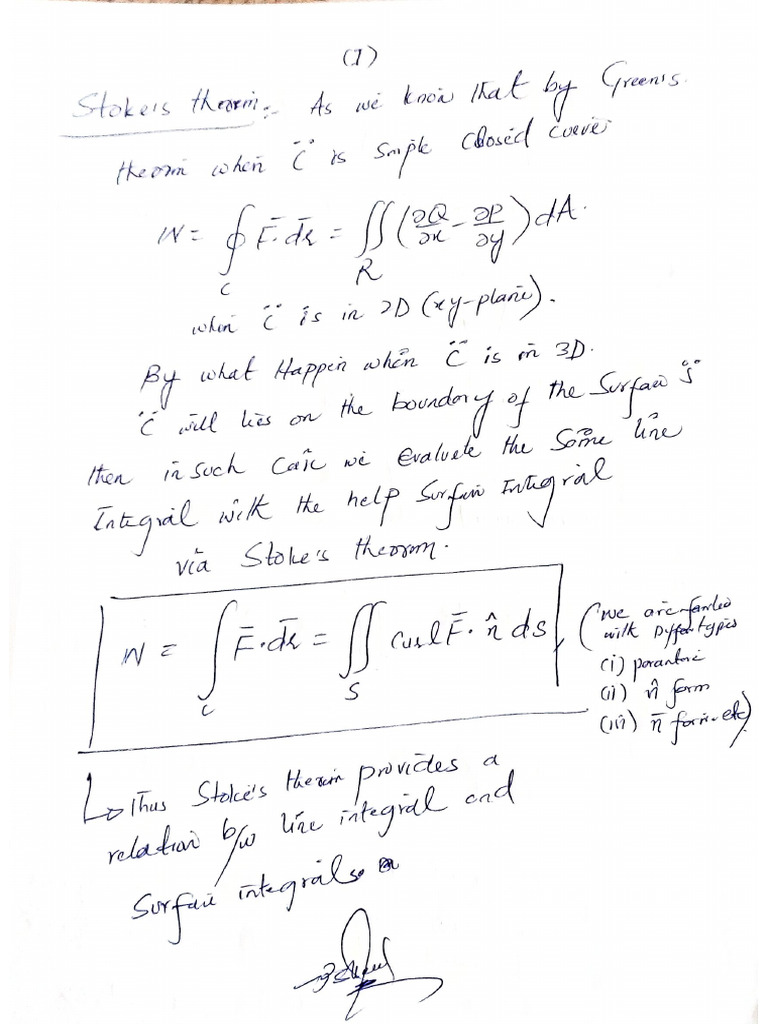 (1)
Stoke's theorem:- As we know that by Green's
theorem when "C" is simple closed curve
W = ∮_C F̄·dr̄ = ∬_R (∂Q/∂x - ∂P/∂y) dA.
when "C" is in 2D (xy-plane).
By what Happen when "C" is in 3D.
"C" will lies on the boundary of the Surface "S"
then in such case we evaluate the same line
Integral with the help Surface Integral
via Stoke's theorem.
W = ∫_C F̄·dr̄ = ∬_S curl F̄·n̂ ds
(We are familar
with Differ types
(i) parametric
(ii) n̂ form
(iii) n̄ form. etc)
↳ Thus Stoke's theorem provides a
relation b/w line integral and
Surface integrals.